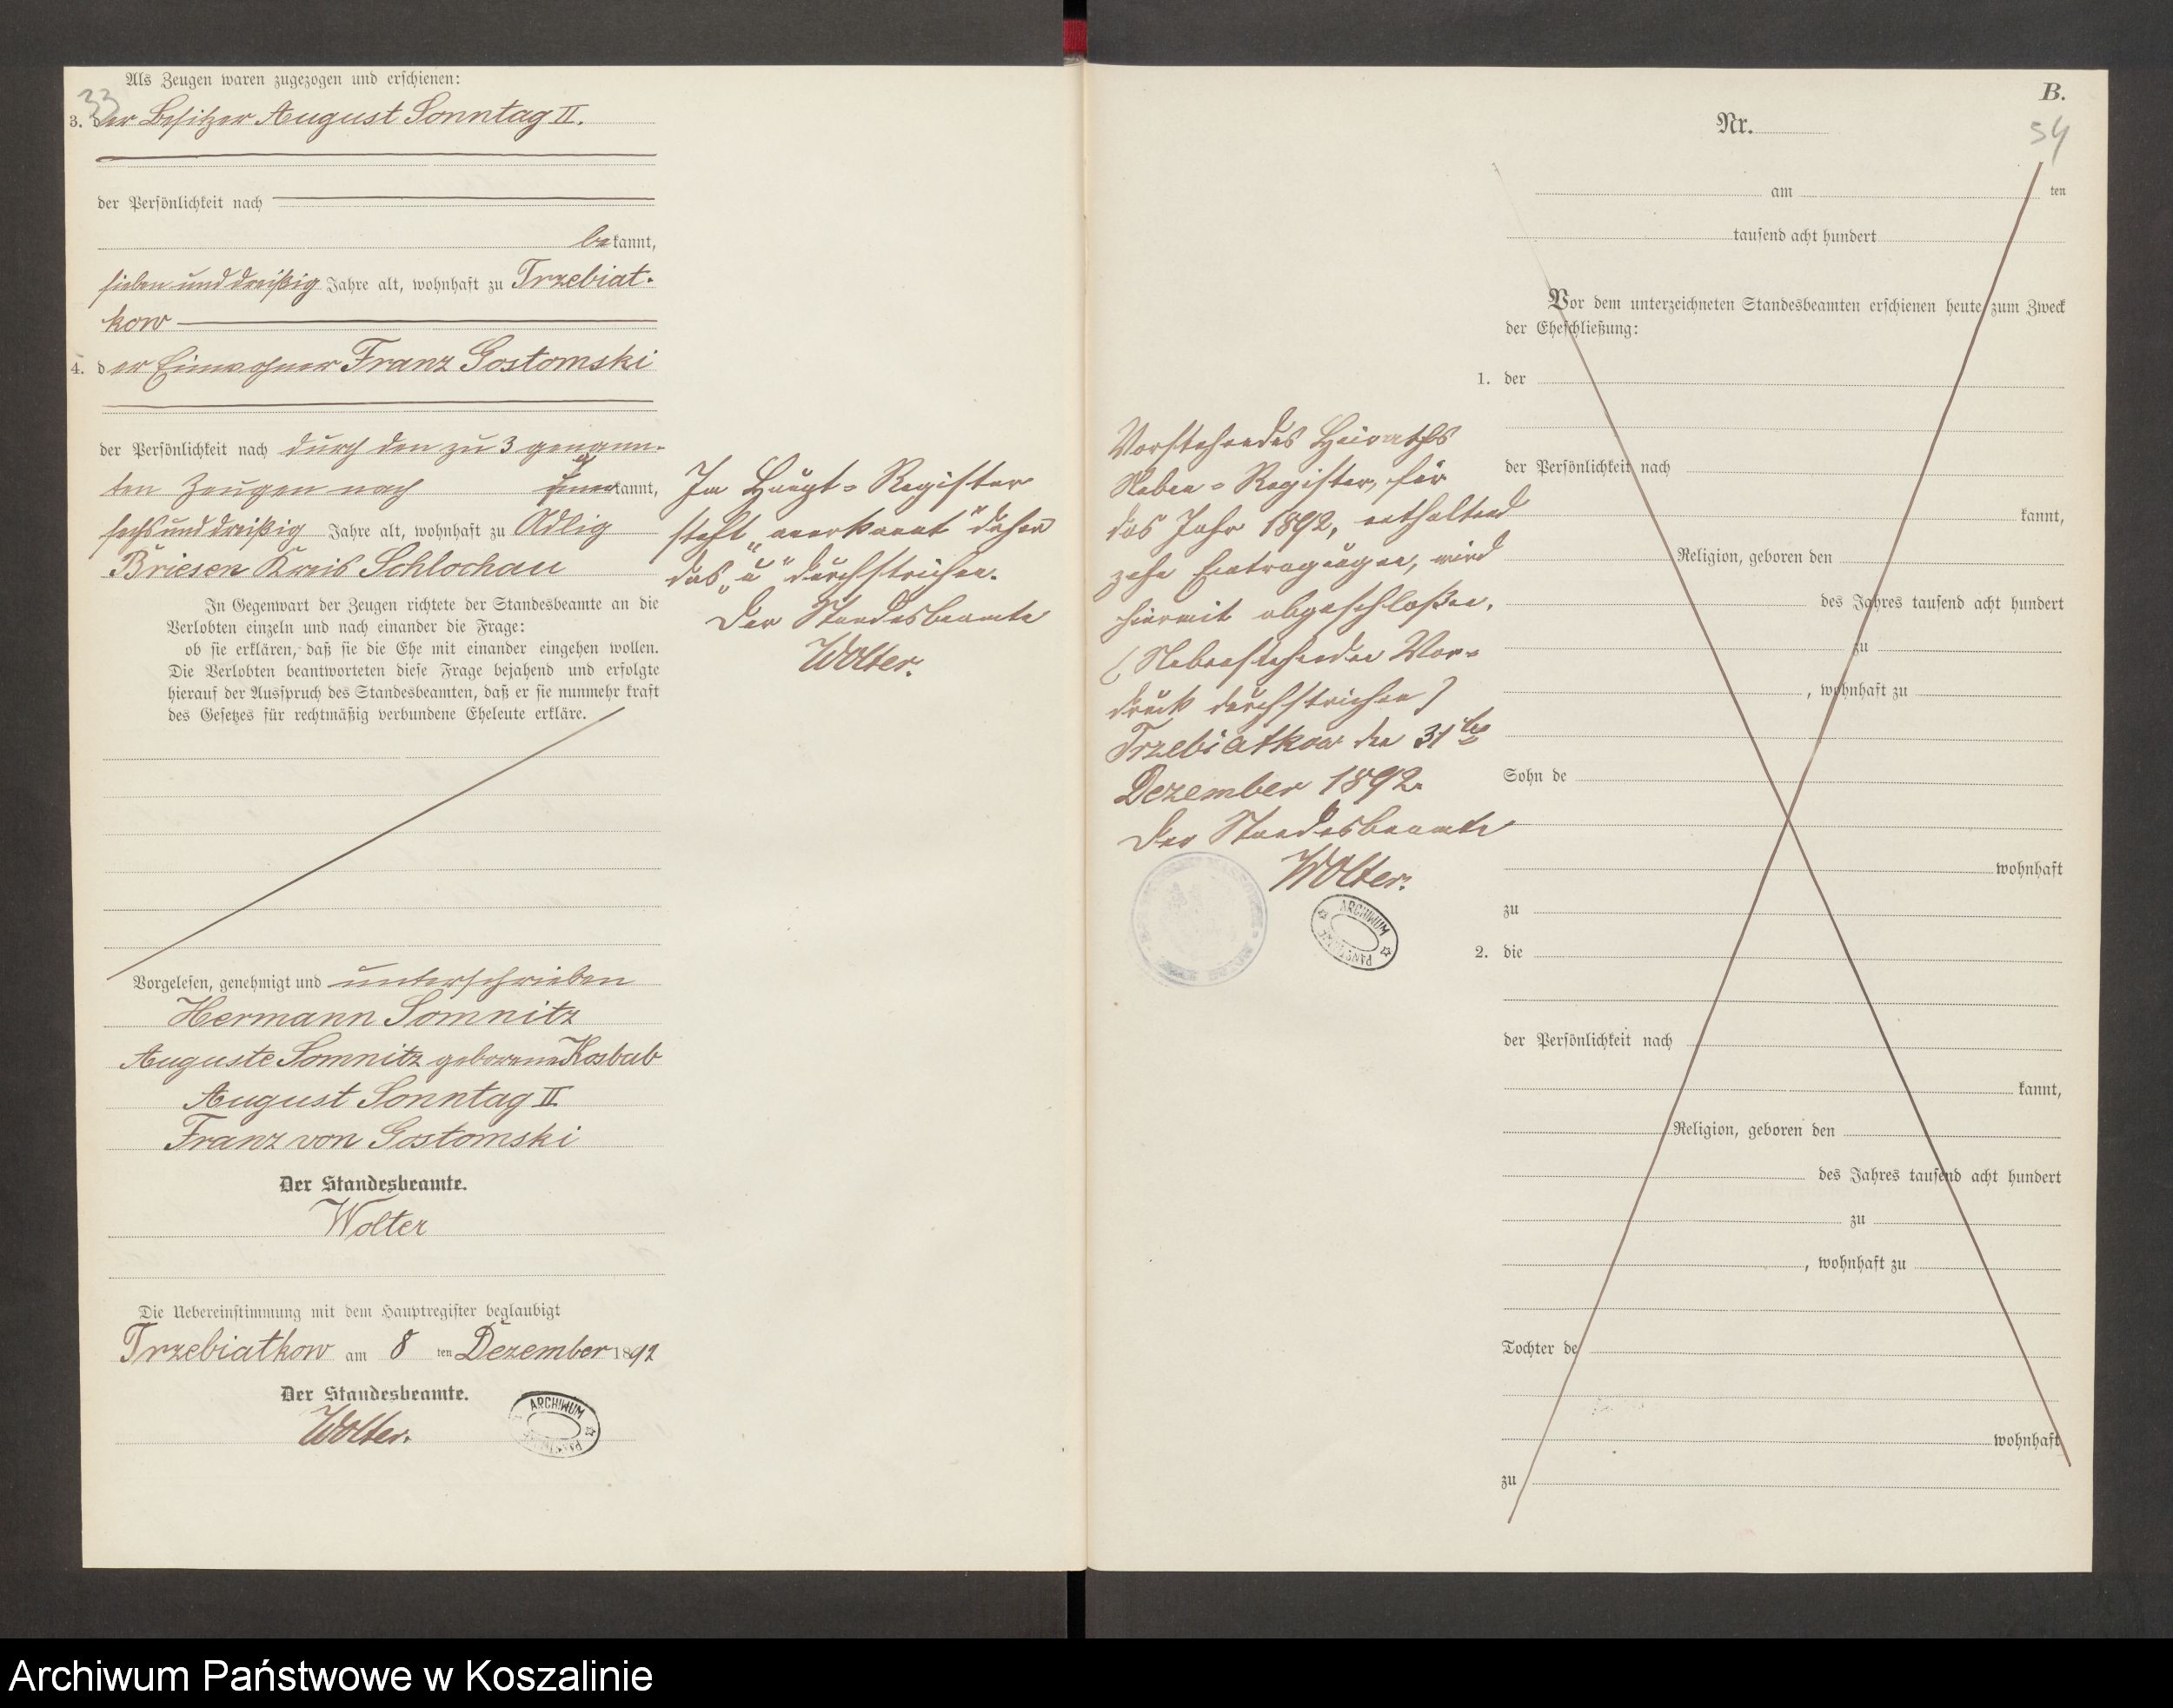 Als Zeugen waren zugezogen und erschienen:
33
3. der Besitzer August Sonntag II.
der Persönlichkeit nach
bekannt,
sieben und dreißig Jahre alt, wohnhaft zu Trzebiat-
kow
4. der Einwohner Franz Gostomski
der Persönlichkeit nach durch den zu 3 genann-
ten Zeugen nach
kannt,
sechs und dreißig Jahre alt, wohnhaft zu Adlig
Briesen Kreis Schlochau
In Gegenwart der Zeugen richtete der Standesbeamte an die
Verlobten einzeln und nach einander die Frage:
ob sie erklären, daß sie die Ehe mit einander eingehen wollen.
Die Verlobten beantworteten diese Frage bejahend und erfolgte
hierauf der Ausspruch des Standesbeamten, daß er sie nunmehr kraft
des Gesetzes für rechtmäßig verbundene Eheleute erkläre.
Vorgelesen, genehmigt und unterschrieben
Hermann Somnitz
Auguste Somnitz geborene Kosbab
August Sonntag II
Franz von Gostomski
Der Standesbeamte.
Wolter
Die Uebereinstimmung mit dem Hauptregister beglaubigt
Trzebiatkow am 8 ten Dezember 1892
Der Standesbeamte.
Wolter.
ARCHIWUM PAŃSTW
Im Haupt-Register
steht „anerkannt" daher
das „u" durchstrichen.
Der Standesbeamte
Wolter.
Vorstehendes Heiraths
Neben-Register, für
das Jahr 1892, enthaltend
zehn Eintragungen, wird
hiermit abgeschloßen.
(Nebenstehender Vor-
druck durchstrichen)
Trzebiatkow den 31ten
Dezember 1892.
Der Standesbeamte
Wolter.
ARCHIWUM PAŃSTW
B.
54
Nr.
am ten
tausend acht hundert
Vor dem unterzeichneten Standesbeamten erschienen heute zum Zweck
der Eheschließung:
1. der
der Persönlichkeit nach
kannt,
Religion, geboren den
des Jahres tausend acht hundert
zu
, wohnhaft zu
Sohn de
wohnhaft
zu
2. die
der Persönlichkeit nach
kannt,
Religion, geboren den
des Jahres tausend acht hundert
zu
, wohnhaft zu
Tochter de
wohnhaft
zu
Archiwum Państwowe w Koszalinie